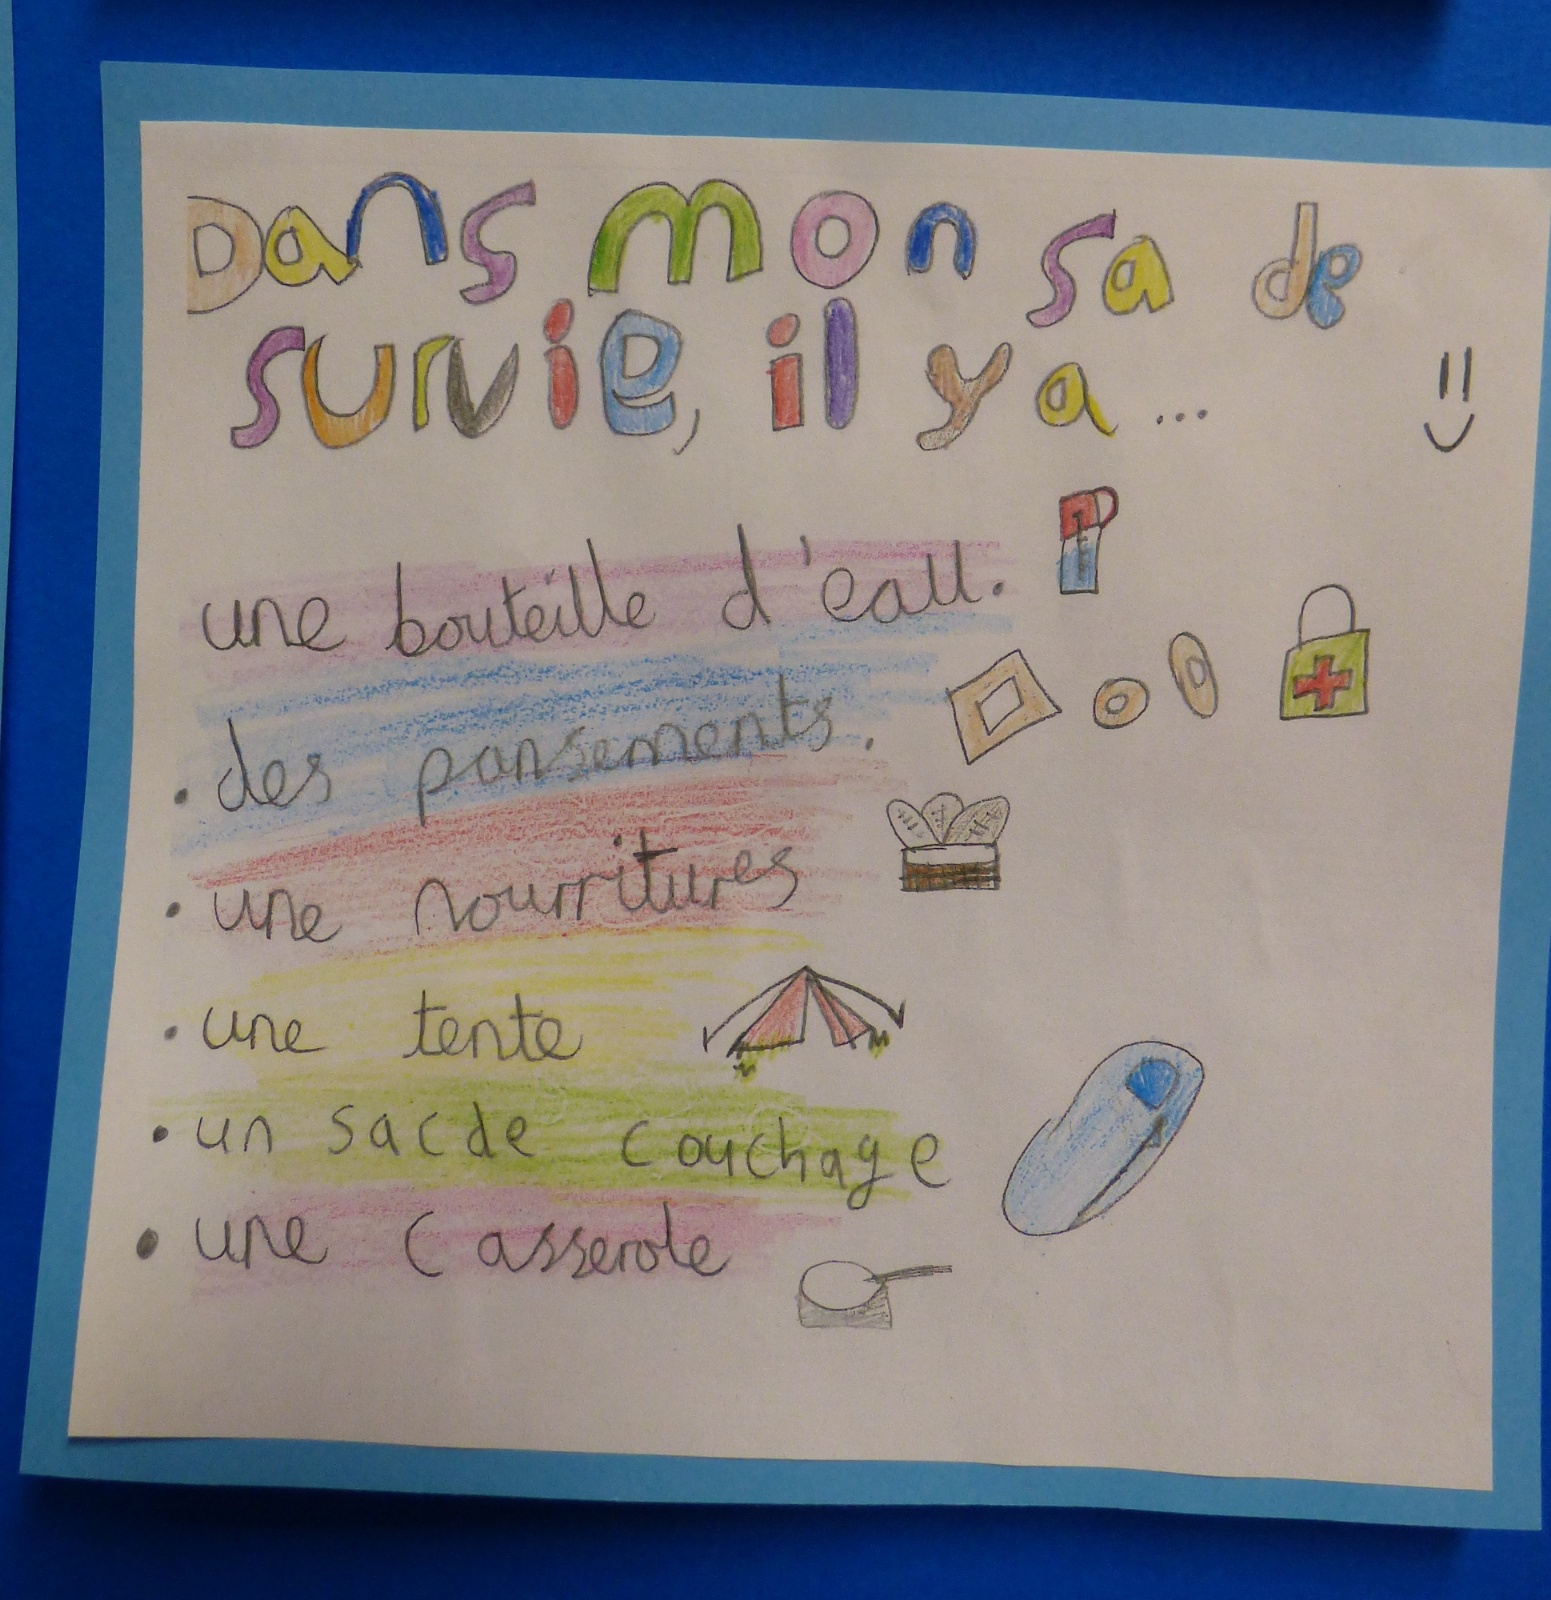 Dans mon sa de
survie, il y a...
une bouteille d'eau.
• des pansements.
• une nourritures
• une tente
• un sac de couchage
• une casserole